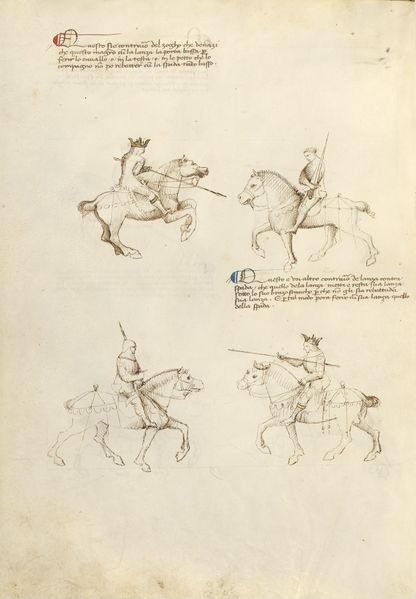 Questo sie contrario del zogho che denanzi
che questo magistro cum la lanza la porta bassa per
ferir lo cavallo o in la testa o in lo petto che lo
compagno non po rebatter cum la spada tanto basso.
Questo e un altro contrario de lanza contra
spada, che quello dela lanza mette e resta sua lanza
sotto lo suo brazo stancho per che non gli sia rebattuda
sua lanza. E per tal modo pora ferir cum sua lanza quello
della spada.